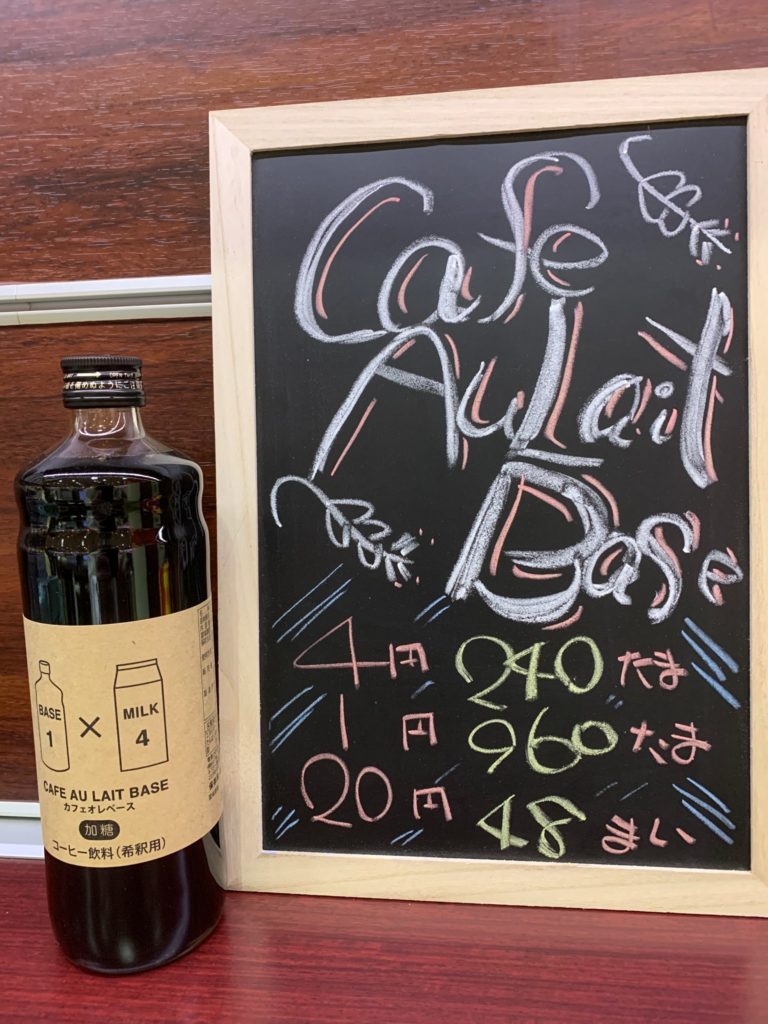 Cafe
Au Lait
Base
4円 240たま
1円 960たま
20円 48まい
BASE
1
×
MILK
4
CAFE AU LAIT BASE
カフェオレベース
加糖
コーヒー飲料(希釈用)